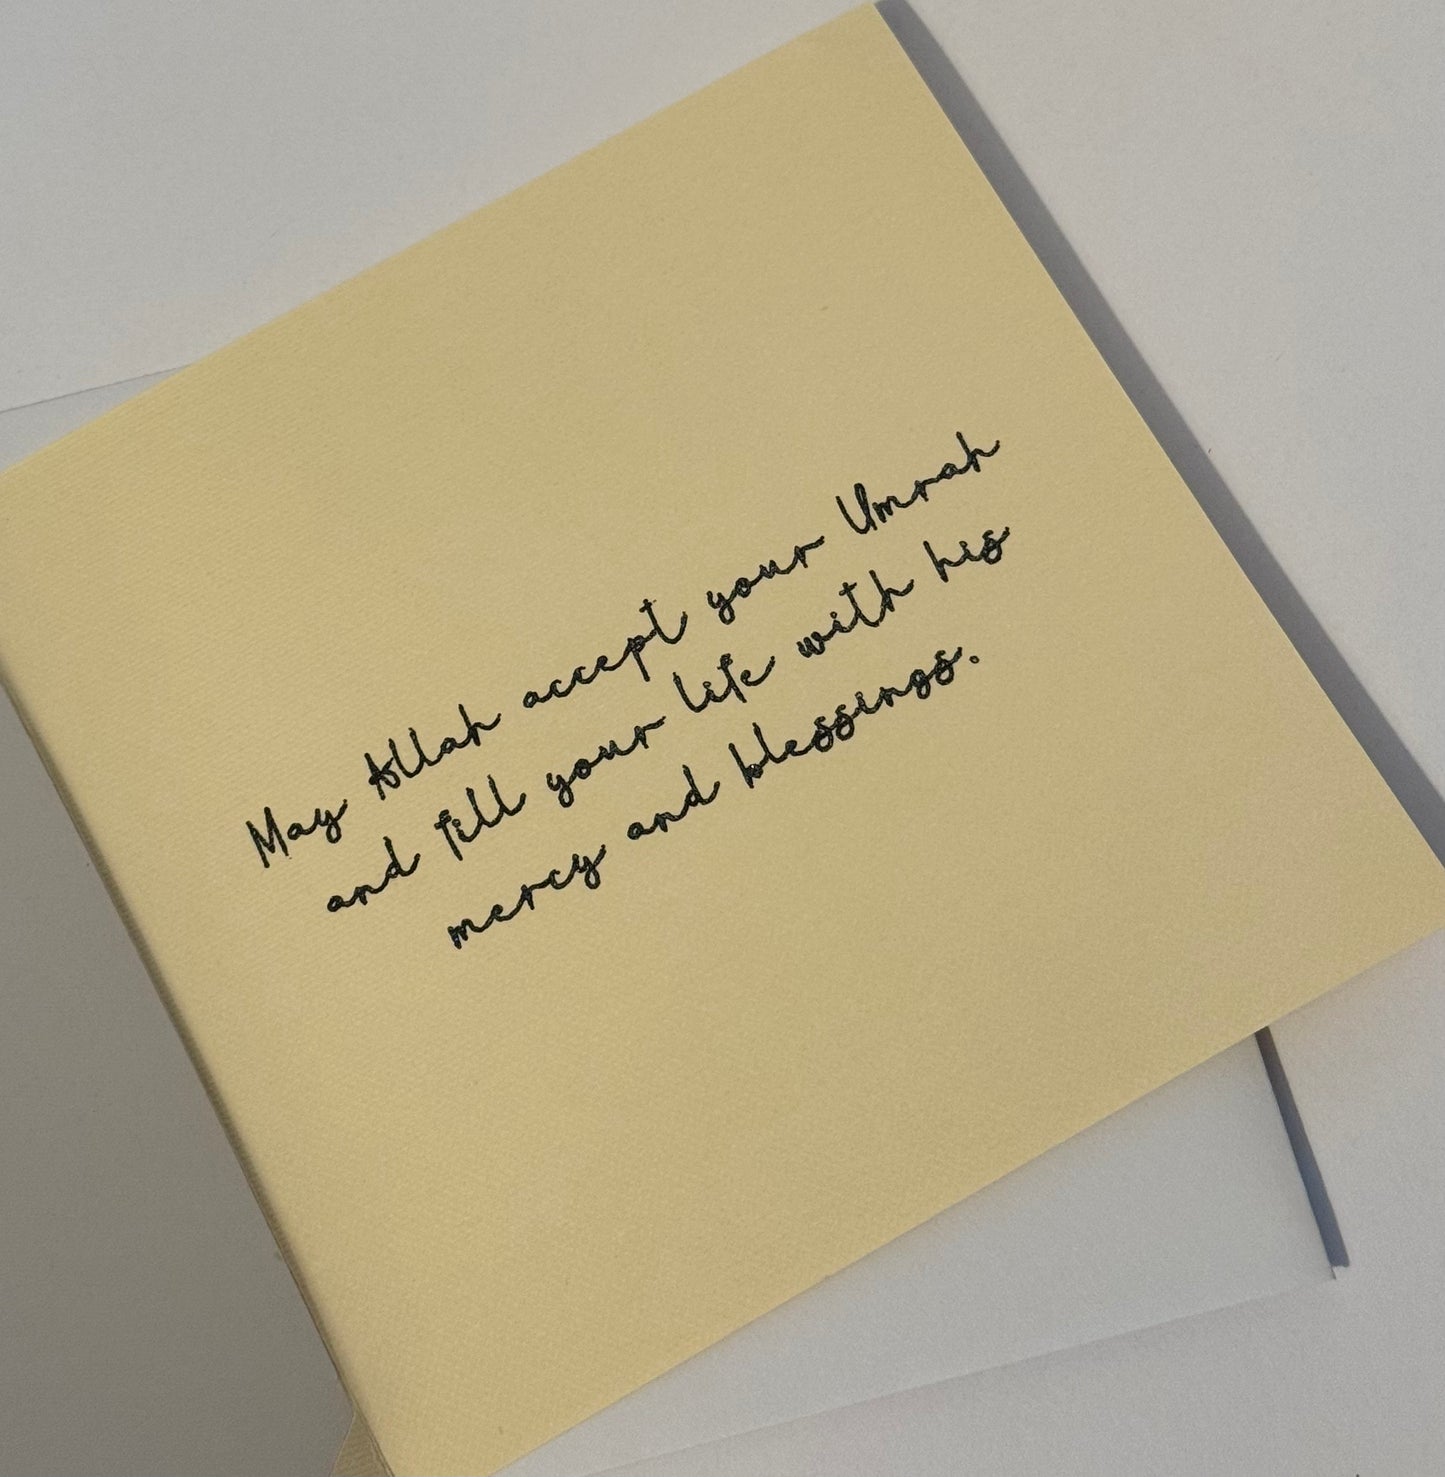 May Allah accept your Umrah
and fill your life with his
mercy and blessings.